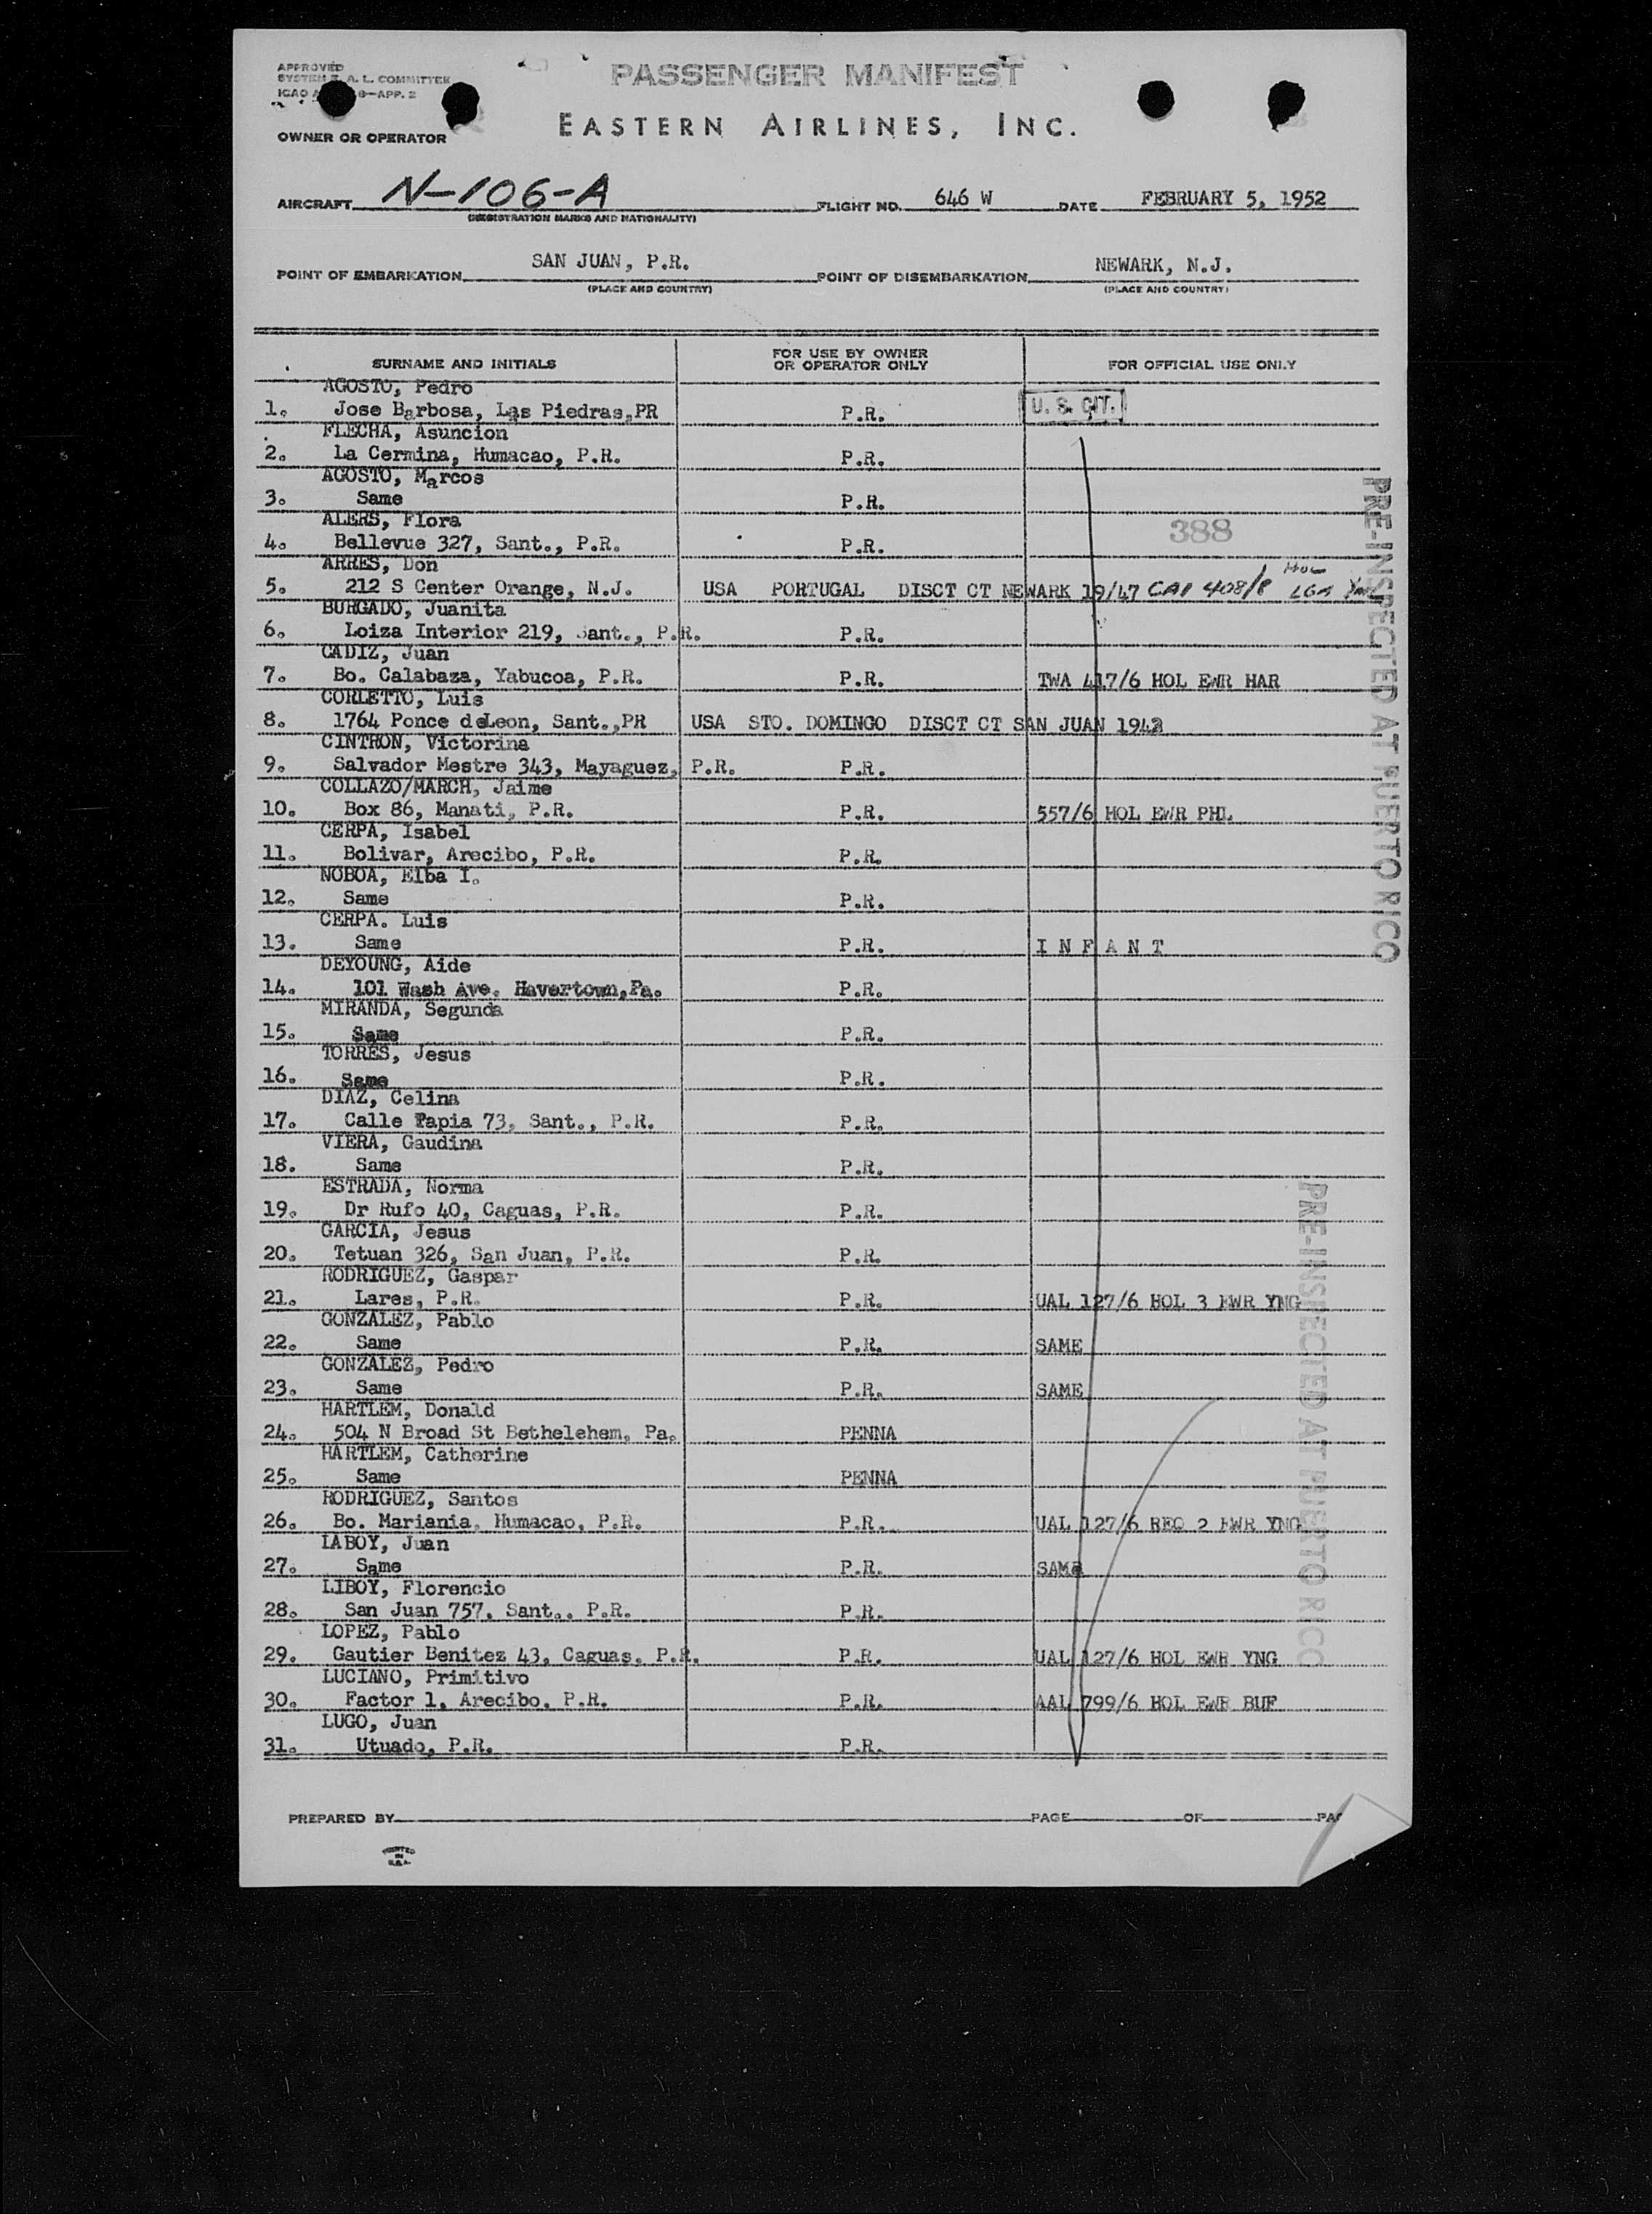 APPROVED
SYSTEM F. A. L. COMMITTEE
ICAO 9-APP. 2
PASSENGER MANIFEST
OWNER OR OPERATOR EASTERN AIRLINES, INC.
AIRCRAFT N-106-A FLIGHT NO. 646 W DATE FEBRUARY 5, 1952
(REGISTRATION MARKS AND NATIONALITY)
POINT OF EMBARKATION SAN JUAN, P.R. POINT OF DISEMBARKATION NEWARK, N.J.
(PLACE AND COUNTRY) (PLACE AND COUNTRY)
SURNAME AND INITIALS FOR USE BY OWNER OR OPERATOR ONLY FOR OFFICIAL USE ONLY
AGOSTO, Pedro
1. Jose Barbosa, Las Piedras,PR P.R. U. S. CIT.
FLECHA, Asuncion
2. La Cermina, Humacao, P.R. P.R.
AGOSTO, Marcos
3. Same P.R.
ALERS, Flora 388
4. Bellevue 327, Sant., P.R. P.R.
ARRES, Don
5. 212 S Center Orange, N.J. USA PORTUGAL DISCT CT NEWARK 19/47 CAP 408/8 HOL LGA
BURGADO, Juanita
6. Loiza Interior 219, Sant., P.R. P.R.
CADIZ, Juan
7. Bo. Calabaza, Yabucoa, P.R. P.R. TWA 417/6 HOL EWR HAR
CORLETTO, Luis
8. 1764 Ponce deLeon, Sant.,PR USA STO. DOMINGO DISCT CT SAN JUAN 1942
CINTRON, Victorina
9. Salvador Mestre 343, Mayaguez, P.R. P.R.
COLLAZO/MARCH, Jaime
10. Box 86, Manati, P.R. P.R. 557/6 HOL EWR PHL
CERPA, Isabel
11. Bolivar, Arecibo, P.R. P.R.
NOBOA, Elba I.
12. Same P.R.
CERPA. Luis
13. Same P.R. I N F A N T
DEYOUNG, Aide
14. 101 Wash Ave. Havertown,Pa. P.R.
MIRANDA, Segunda
15. Same P.R.
TORRES, Jesus
16. Same P.R.
DIAZ, Celina
17. Calle Tapia 73, Sant., P.R. P.R.
VIERA, Gaudina
18. Same P.R.
ESTRADA, Norma
19. Dr Rufo 40, Caguas, P.R. P.R.
GARCIA, Jesus
20. Tetuan 326, San Juan, P.R. P.R.
RODRIGUEZ, Gaspar
21. Lares, P.R. P.R. UAL 127/6 HOL 3 EWR YNG
GONZALEZ, Pablo
22. Same P.R. SAME
GONZALEZ, Pedro
23. Same P.R. SAME
HARTLEM, Donald
24. 504 N Broad St Bethelehem, Pa. PENNA
HARTLEM, Catherine
25. Same PENNA
RODRIGUEZ, Santos
26. Bo. Mariania, Humacao, P.R. P.R. UAL 127/6 REQ 2 EWR YNG
LABOY, Juan
27. Same P.R. SAME
LIBOY, Florencio
28. San Juan 757, Sant., P.R. P.R.
LOPEZ, Pablo
29. Gautier Benitez 43, Caguas, P.R. P.R. UAL 127/6 HOL EWR YNG
LUCIANO, Primitivo
30. Factor 1, Arecibo, P.R. P.R. AAL 799/6 HOL EWR BUF
LUGO, Juan
31. Utuado, P.R. P.R.
PRE-INSPECTED AT PUERTO RICO
PRE-INSPECTED AT PUERTO RICO
PREPARED BY PAGE OF PAG
PRINTED
IN
U.S.A.